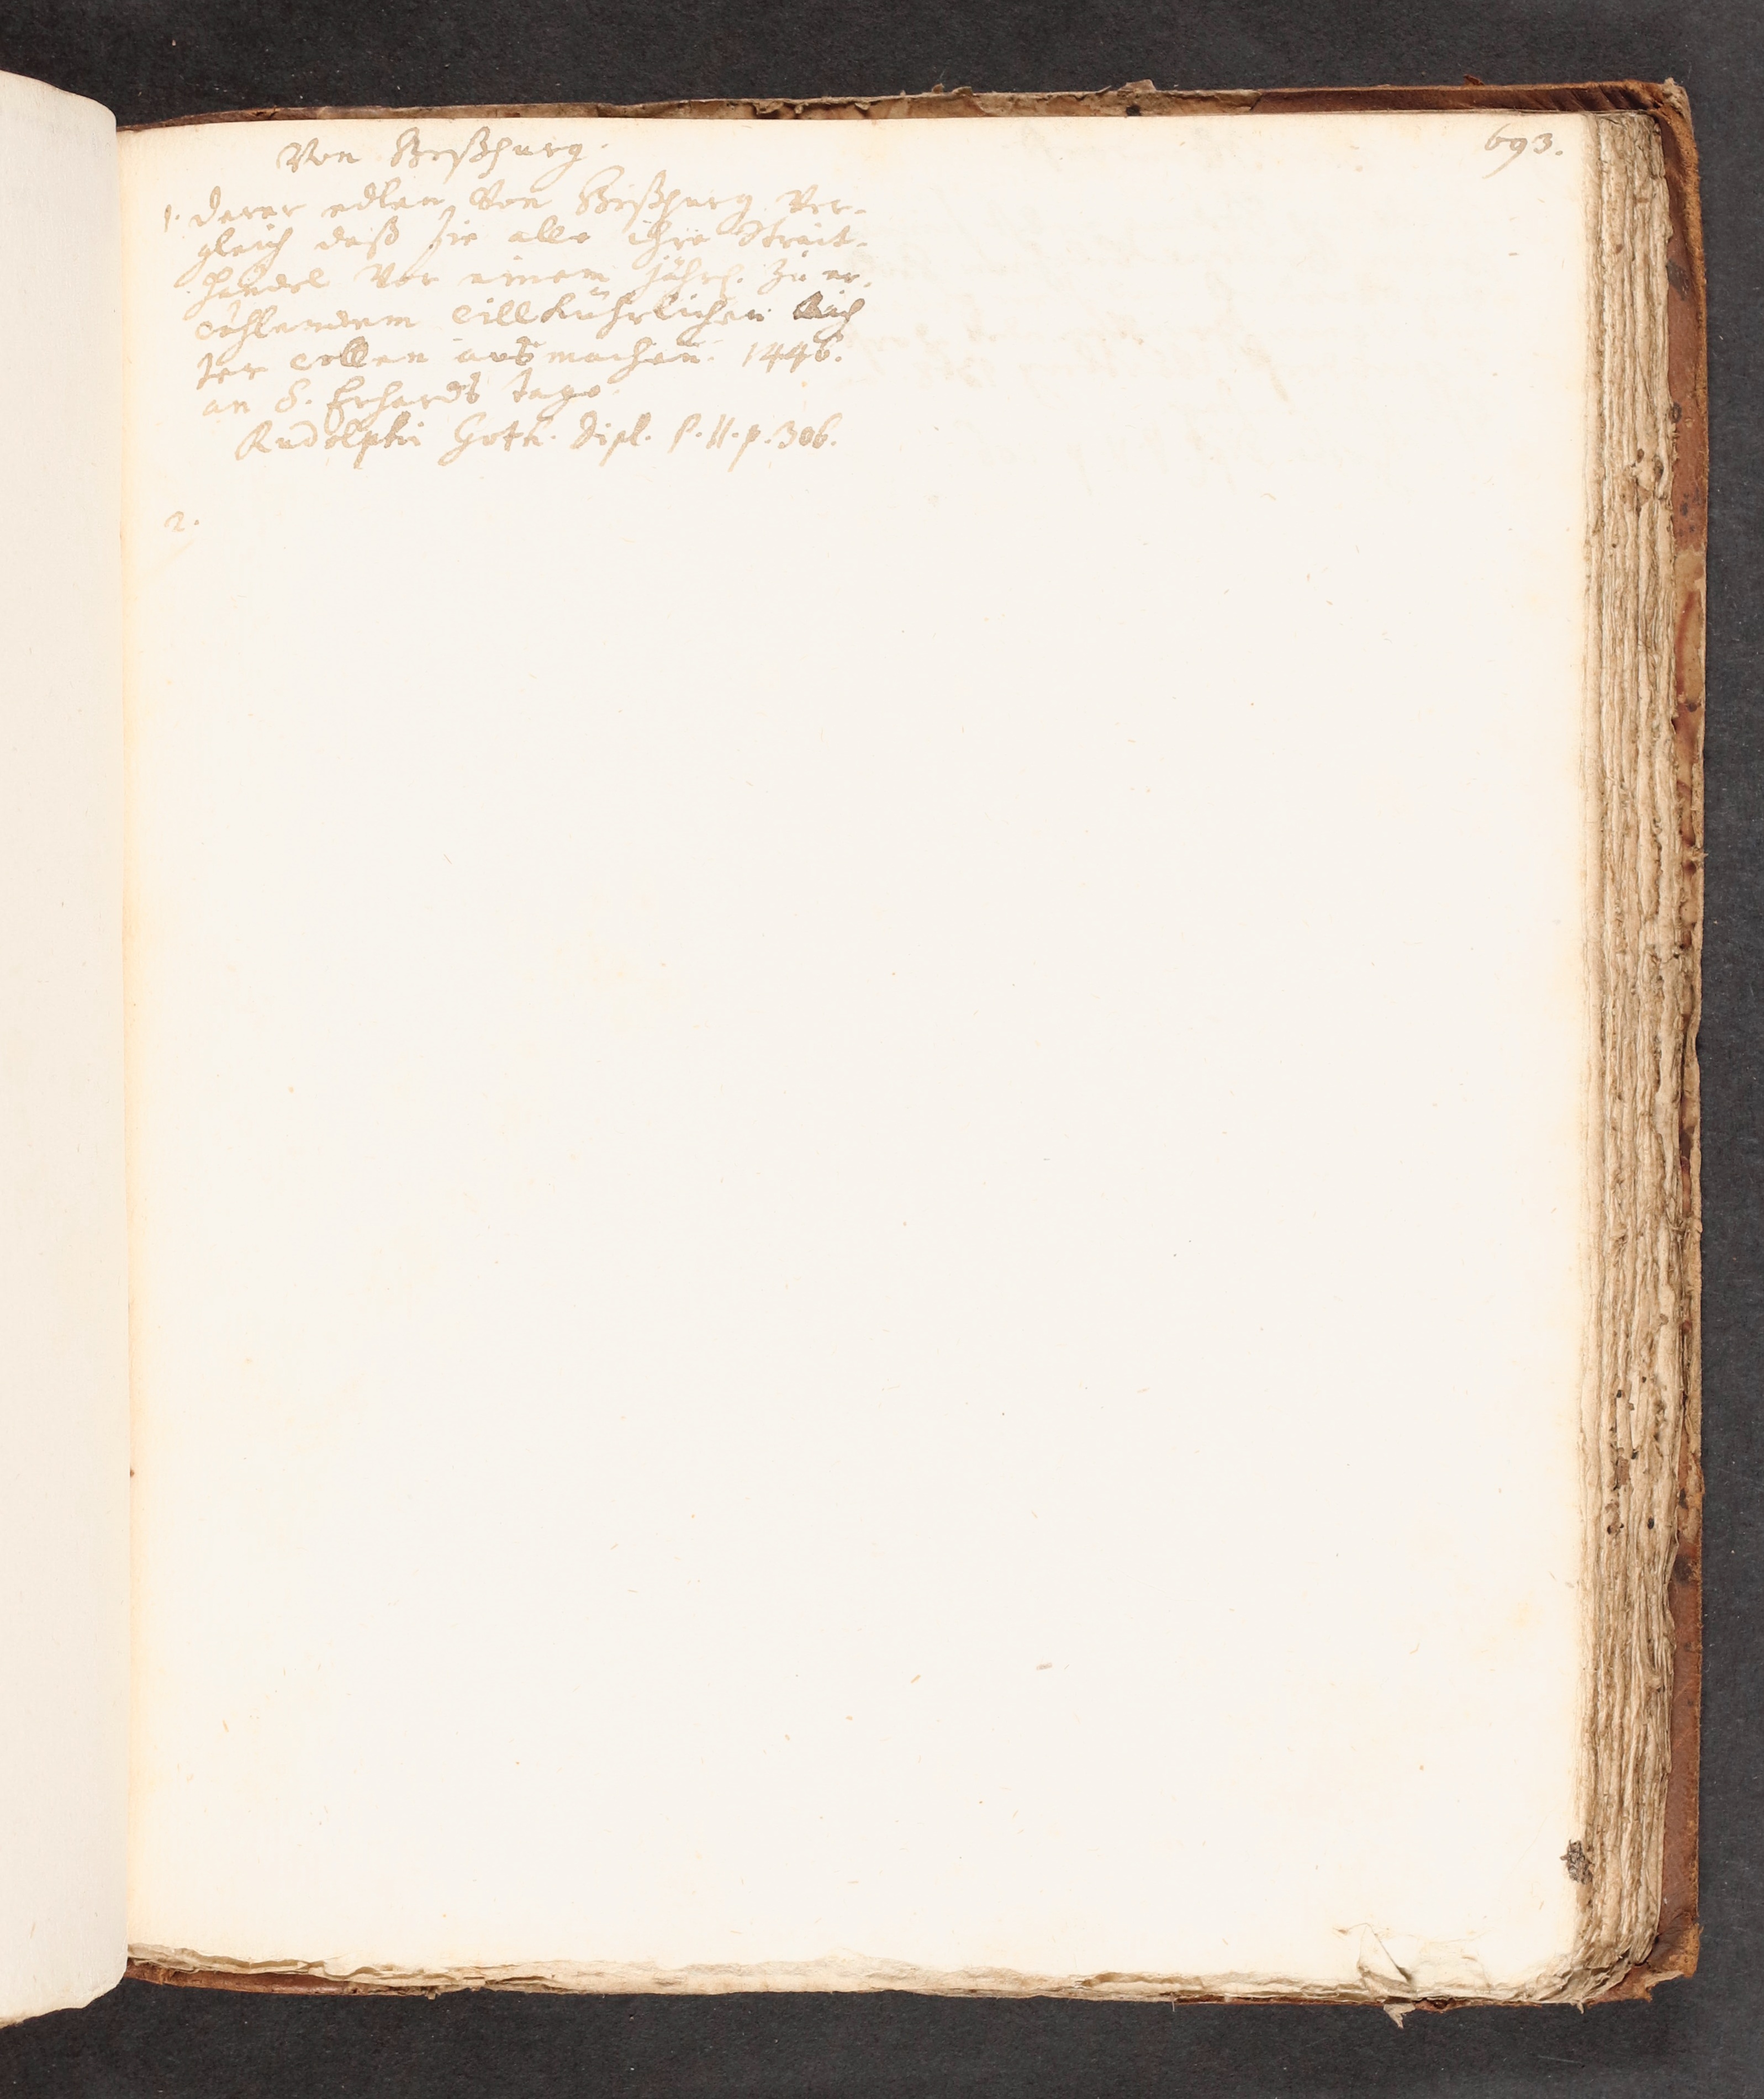 693.
Von Bißhurg.
1. derer edlen Von Bißhurg Ver-
gleich daß sie alle ihre Streit-
händel Vor einem jährl. zu er-
wehlendem willkührlichen Rich
ter wollen ausmachen. 1446.
an S. Erhards tage
Rudolphi Goth. Dipl. P. II. p. 306.
2.